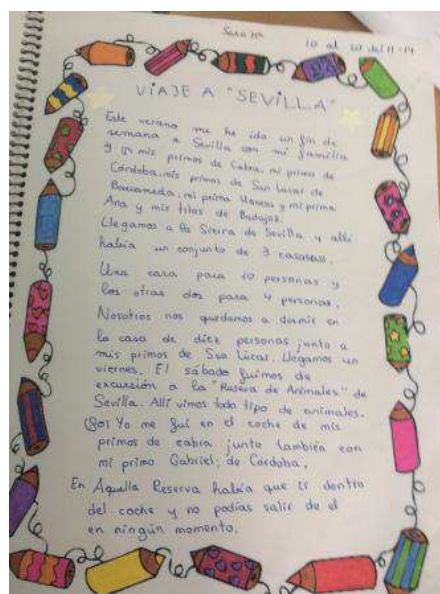 Sara Mª
10 al
VIAJE A "SEVILLA"
Este verano me he ido un fin de
semana a Sevilla con mi familia
y mis primos de Cabra, mi primo de
Córdoba, mis primos de San Lucar de
Barrameda, mi prima y mi prima
Ana y mis titos de Badajoz.
Llegamos a la Sierra de Sevilla y allí
había un conjunto de 3 casasas.
Una casa para 10 personas y
las otras dos para 4 personas.
Nosotros nos quedamos a dormir en
la casa de diez personas junto a
mis primos de San Lucar. Llegamos un
viernes. El sábado fuimos de
excursión a la "Reserva de Animales" de
Sevilla. Allí vimos todo tipo de animales.
Yo me fui en el coche de mis
primos de cabra junto también con
mi primo Gabriel, de Córdoba.
En Aquella Reserva había que ir dentro
del coche y no podías salir de el
en ningún momento.